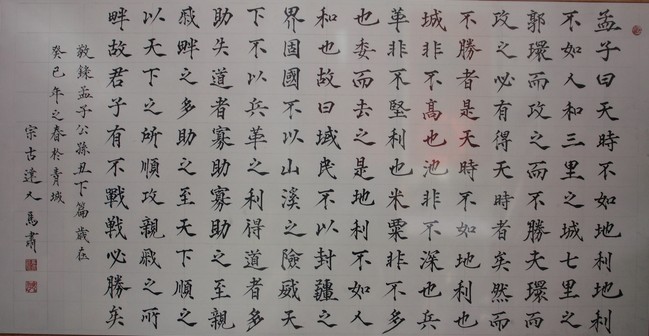 孟子曰天時不如地利地利
不如人和三里之城七里之
郭環而攻之而不勝夫環而
攻之必有得天時者矣然而
不勝者是天時不如地利也
城非不髙也池非不深也兵
革非不堅利也米粟非不多
也委而去之是地利不如人
和也故曰域民不以封疆之
界固國不以山溪之險威天
下不以兵革之利得道者多
助失道者寡助寡助之至親
戚畔之多助之至天下順之
以天下之所順攻親戚之所
畔故君子有不戰戰必勝矣
敬錄孟子公孫丑下篇歲在
癸巳年之春於青城
宗古達人馬肅